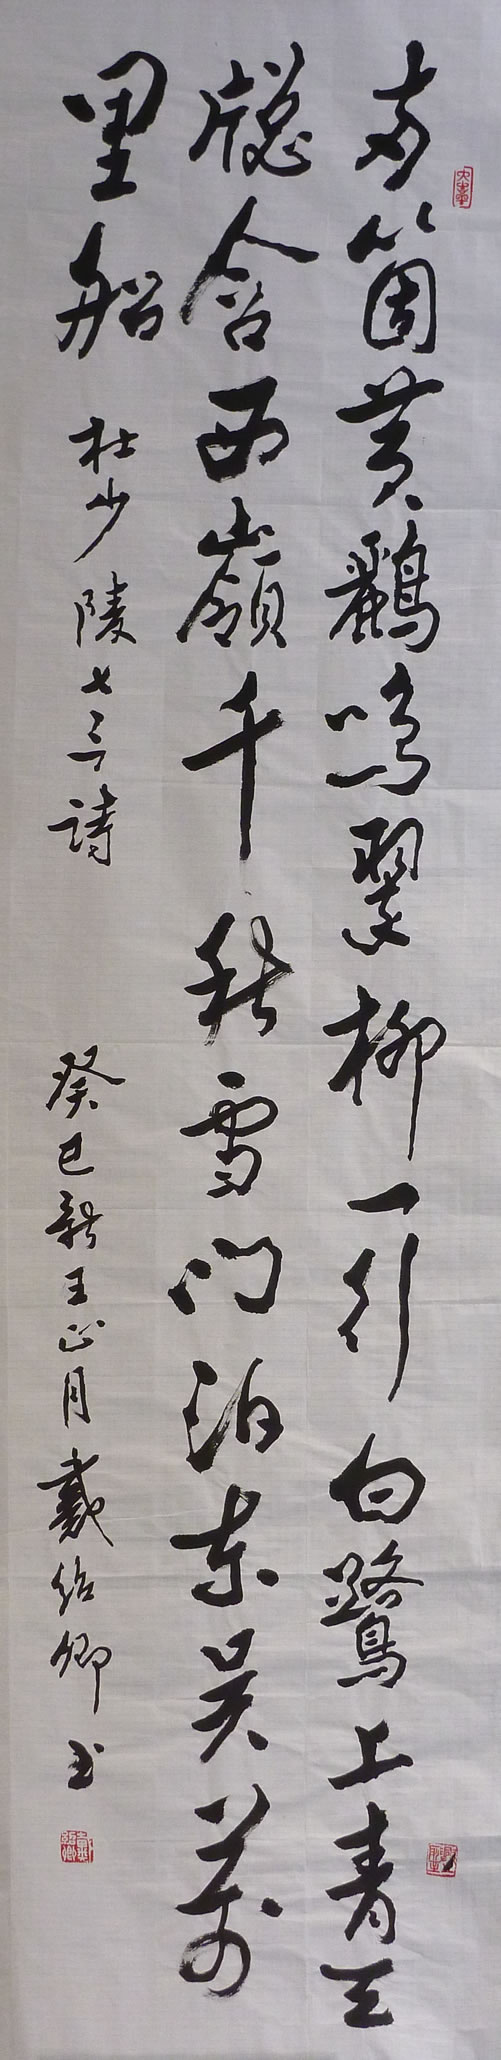 两箇黄鸝鳴翠柳一行白鷺上青天
牕含西嶺千秋雪门泊东吴万
里船 杜少陵七言詩 癸巳新王正月戴紹卿书